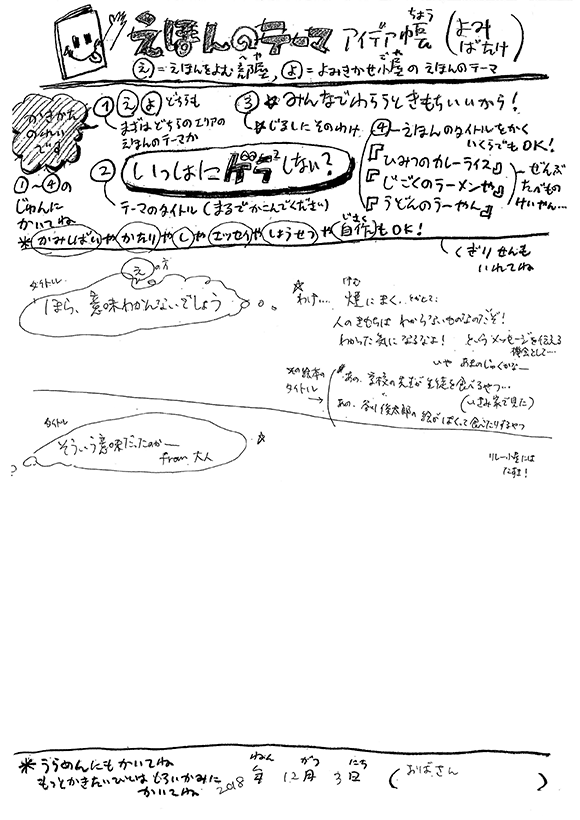 えほんのテーマ アイデア帳(ちょう) (よみばたけ)
え=えほんをよむ部屋(へや), よ=よみきかせ小屋(ごや)のえほんのテーマ
かきかた
のれい
です
①~④の
じゅんに
かいてね
① え よ どちらも
まずはどちらのエリアの
えほんのテーマか
② いっしょに ゲラゲラ しない?
テーマのタイトル(まるでかこんでください)
③ ☆みんなでわらうときもちいいから!
☆じるしこそのわけ
④ーえほんのタイトルをかく
いくらでもOK!
『ひみつのカレーライス』
『じごくのラーメンや』
『うどんのうーやん』
ぜんぶ
たべもの
けいやん…
※かみしばいやかたりやしやエッセイやしょうせつや自作(じさく)もOK!
くぎりせんも
いれてね
えの方
タイトル
ほら、意味わかんないでしょう
☆わけ… 煙(けむ)にまく、とかして、
人のきもちは わからないものなのだぞ!
わかった気になるなよ! というメッセージを伝える
機会として…
いや あまのじゃくかなー
※の絵本の
タイトル→
あの、学校の先生が生徒を食べるやつ…
(いさみ家で見た)
あの、谷川俊太郎の絵がぱくって食べたりするやつ
タイトル
そういう意味だったのかー
from 大人
☆
リレー小屋には
だすよ!
※うらめんにもかいてね
もっとかきたいひとは しろいかみに
かいてね
2018年(ねん) 12月(がつ) 3日(にち) (おばさん)